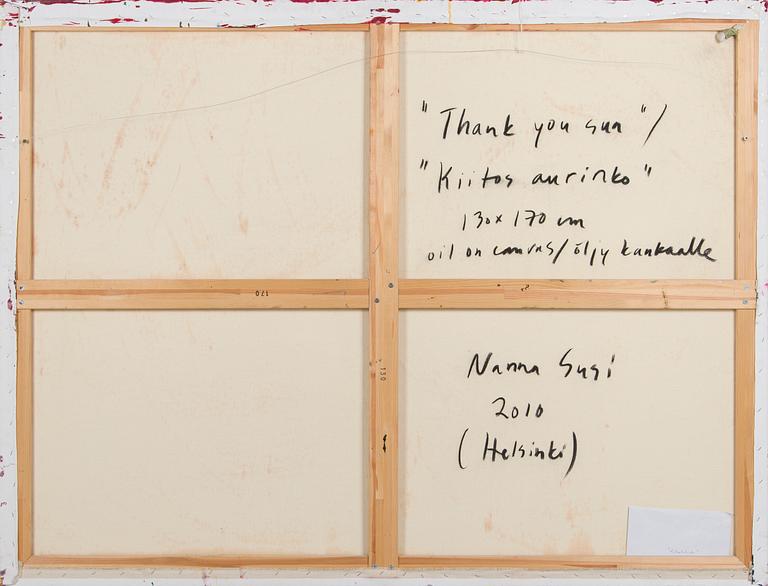 "Thank you sun"/
"Kiitos aurinko"
130 x 170 cm
oil on canvas/öljy kankaalle
170
130
Nanna Susi
2010
(Helsinki)